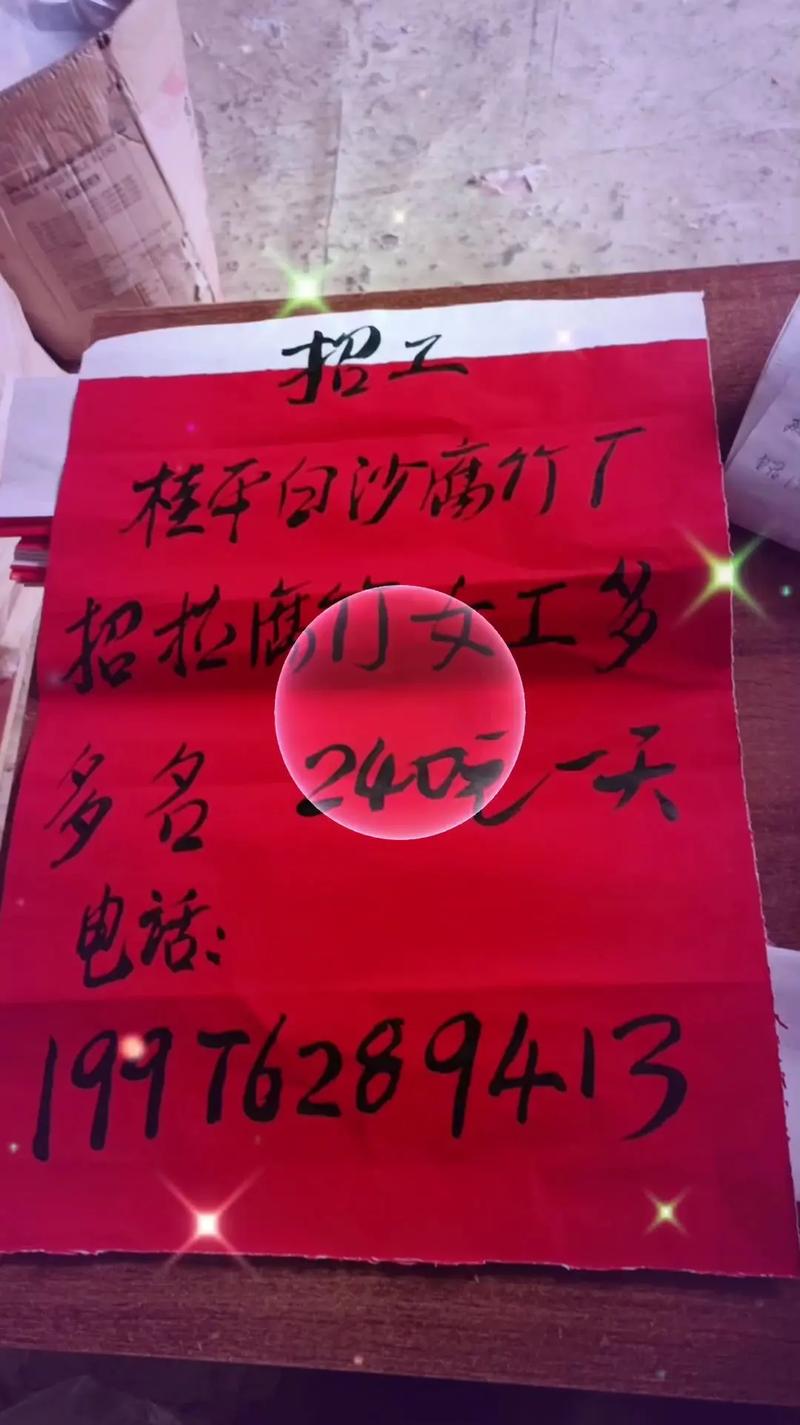 招工
桂平白沙腐竹厂
招拉腐竹女工多
多名 240元一天
电话:
19976289413